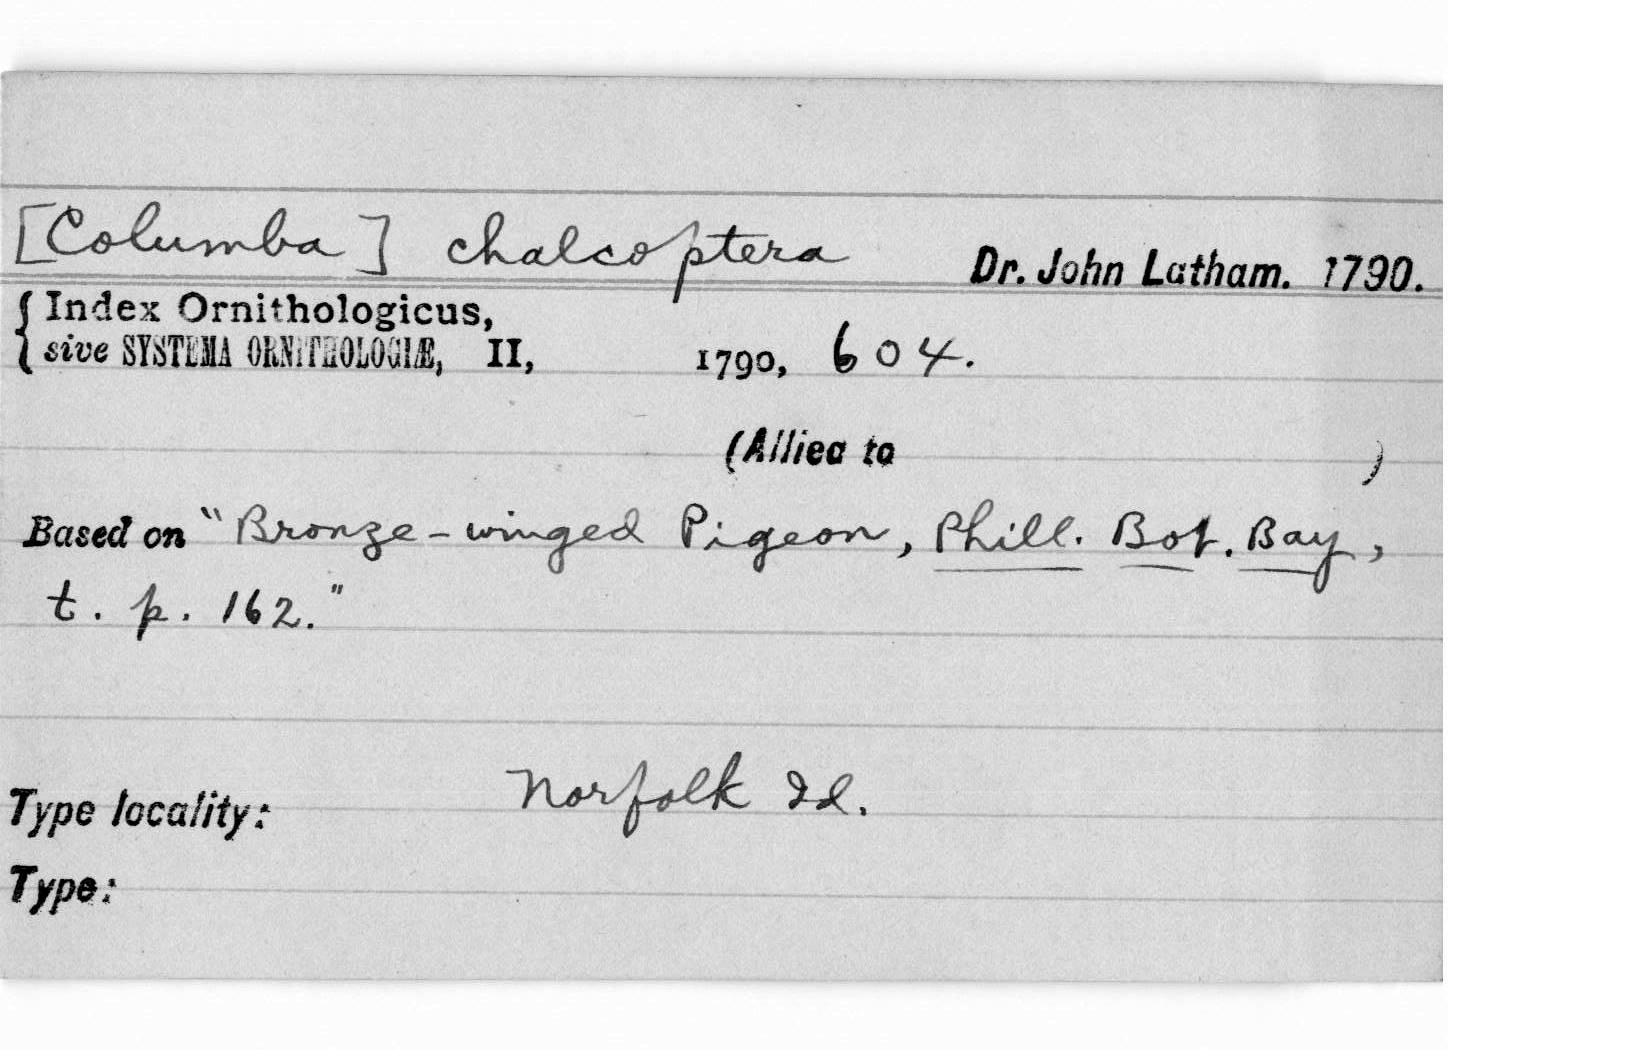 [Columba] chalcoptera Dr. John Latham. 1790.
{ Index Ornithologicus,
sive SYSTEMA ORNITHOLOGIÆ, II, 1790, 604.
(Allied to )
Based on "Bronze-winged Pigeon, Phill. Bot. Bay,
t. p. 162."
Type locality: Norfolk Id.
Type: